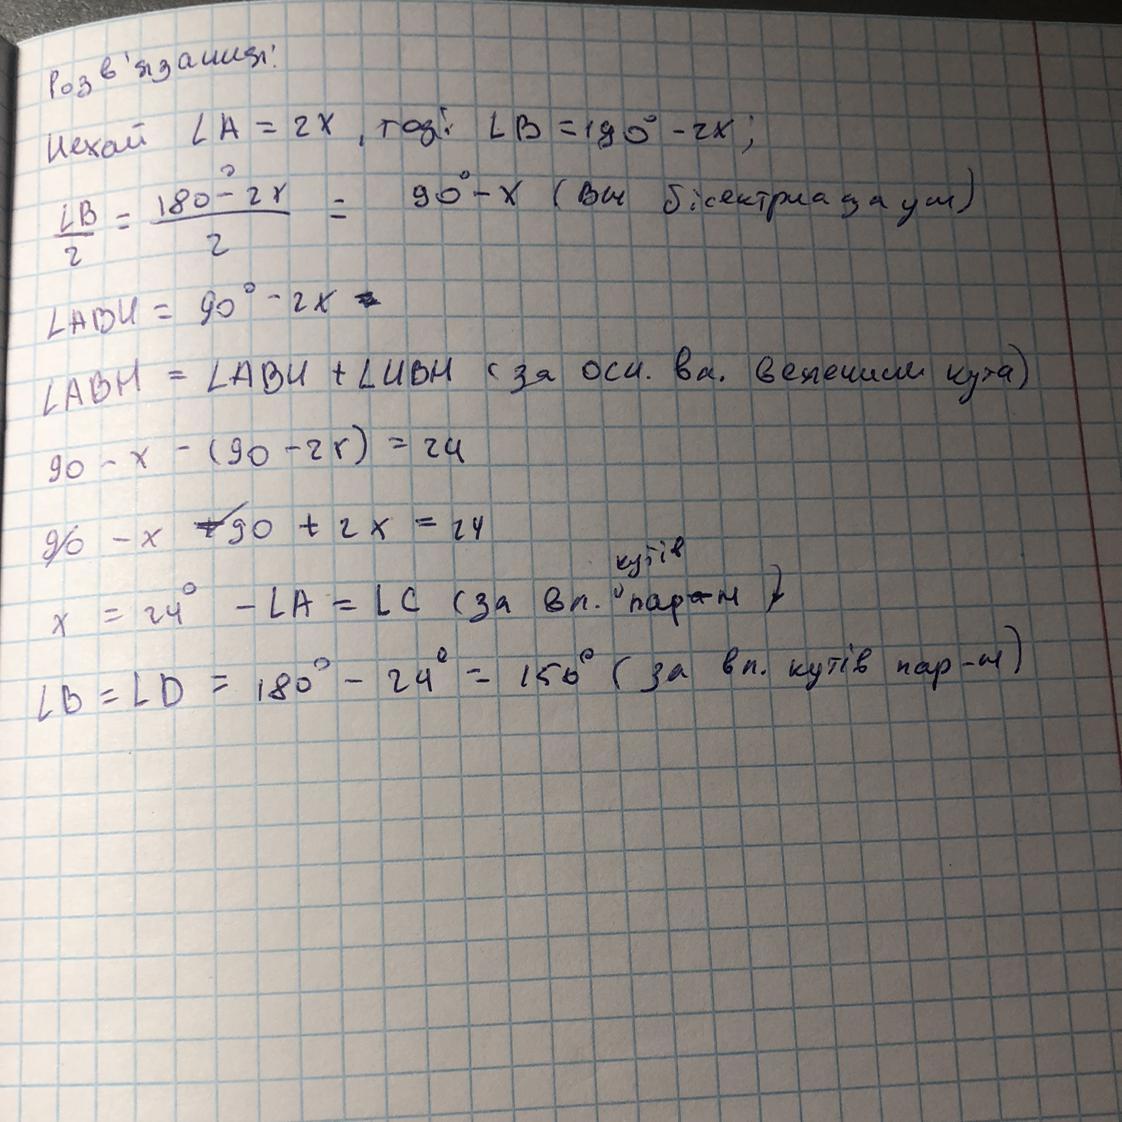 Розв'язання:
Нехай ∠A = 2x, тоді ∠B = 180° - 2x;
∠B/2 = 180° - 2x/2 = 90° - x (BM бісектриса за ум)
∠ABH = 90° - 2x
∠ABM = ∠ABH + ∠HBM (за осн. вл. величини кута)
90 - x - (90 - 2x) = 24
90 - x - 90 + 2x = 24
x = 24° - ∠A = ∠C (за вл. кутів пар-м)
∠B = ∠D = 180° - 24° = 156° (за вл. кутів пар-м)